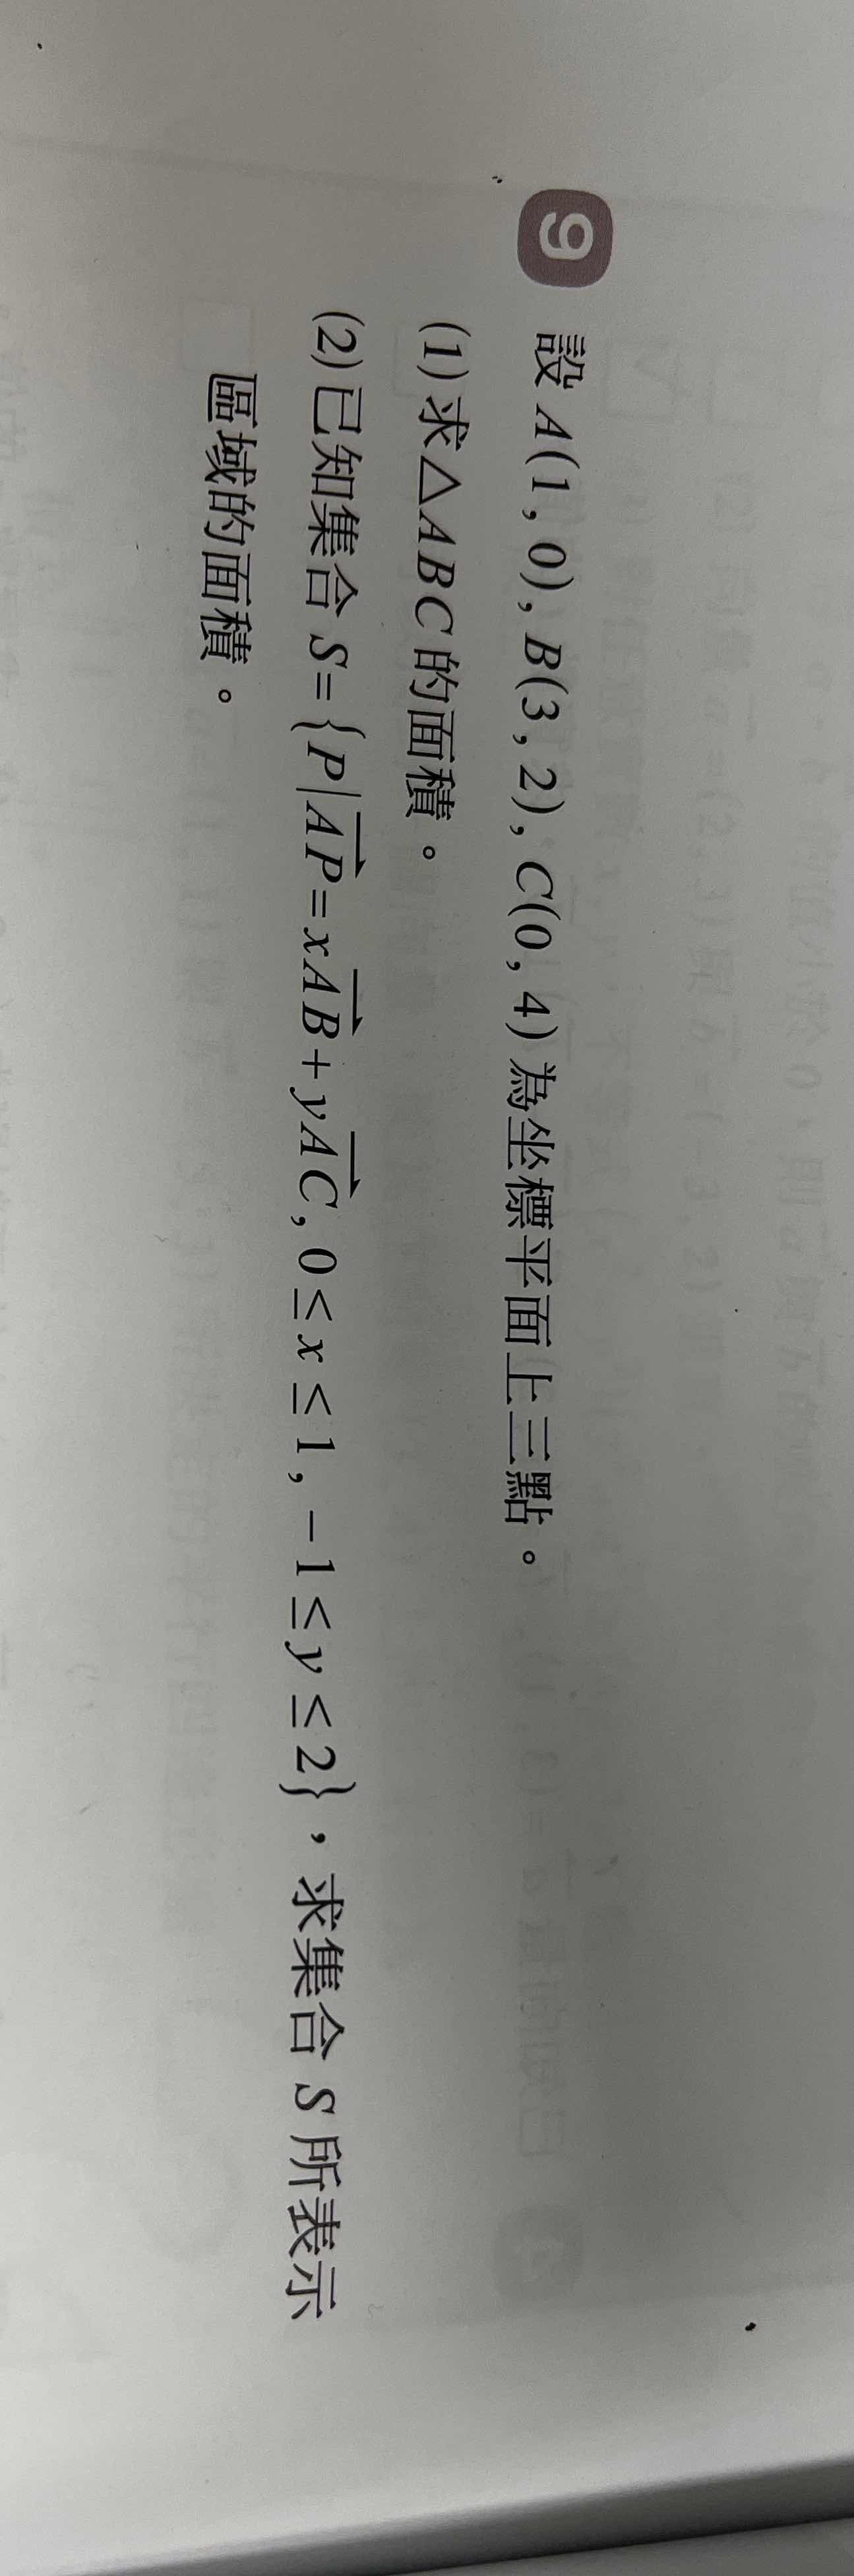 9 設 A(1, 0), B(3, 2), C(0, 4) 為坐標平面上三點。
(1) 求△ABC 的面積。
(2) 已知集合 S={P|\overrightarrow{AP}=x\overrightarrow{AB}+y\overrightarrow{AC}, 0≤x≤1, −1≤y≤2}，求集合 S 所表示
區域的面積。